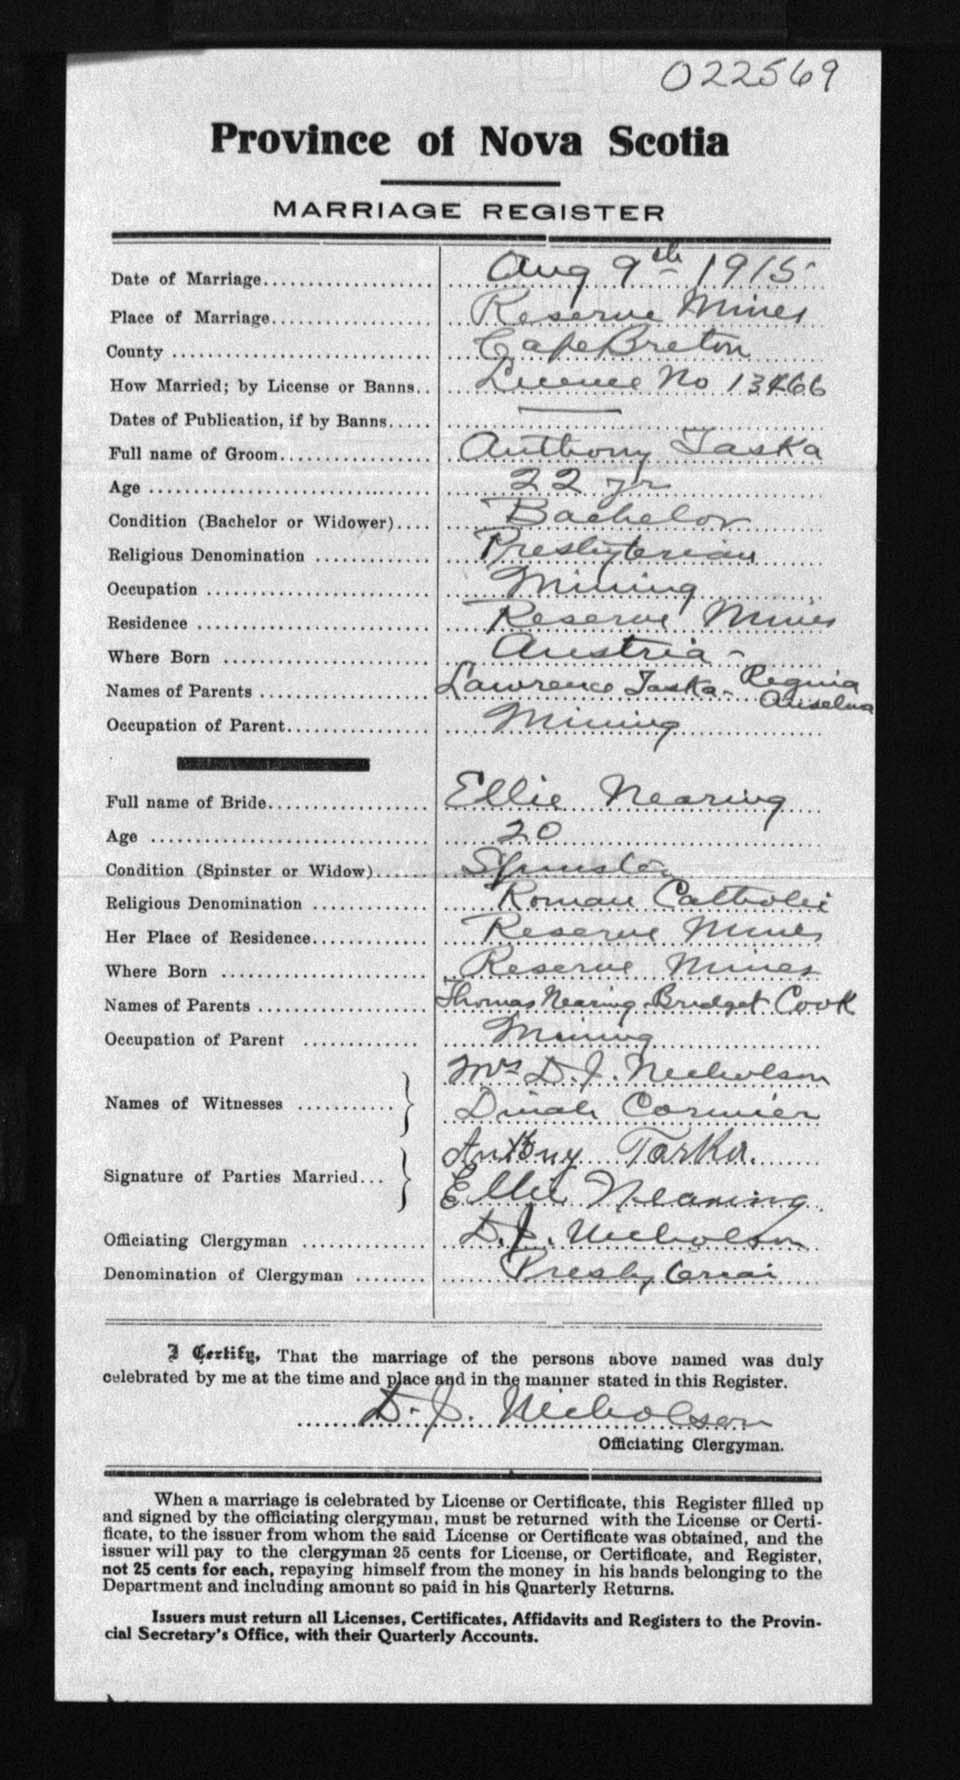 022569
Province of Nova Scotia
MARRIAGE REGISTER
Date of Marriage Aug 9th 1915
Place of Marriage Reserve Mines
County Cape Breton
How Married; by License or Banns Licence No 13466
Dates of Publication, if by Banns —
Full name of Groom Anthony Taska
Age 22 yr
Condition (Bachelor or Widower) Bachelor
Religious Denomination Presbyterian
Occupation Mining
Residence Reserve Mines
Where Born Austria -
Names of Parents Lawrence Taska - Regina
Occupation of Parent Mining
Full name of Bride Ellie Nearing
Age 20
Condition (Spinster or Widow) Spinster
Religious Denomination Roman Catholic
Her Place of Residence Reserve Mines
Where Born Reserve Mines
Names of Parents Thomas Nearing Bridget Cook
Occupation of Parent Mining
Names of Witnesses Mrs D. J. Nicholson
Dinah Cormier
Signature of Parties Married Anthony Taska.
Ellie Nearing
Officiating Clergyman D. J. Nicholson
Denomination of Clergyman Presbyterian
I Certify, That the marriage of the persons above named was duly
celebrated by me at the time and place and in the manner stated in this Register.
D. J. Nicholson
Officiating Clergyman.
When a marriage is celebrated by License or Certificate, this Register filled up
and signed by the officiating clergyman, must be returned with the License or Certi-
ficate, to the issuer from whom the said License or Certificate was obtained, and the
issuer will pay to the clergyman 25 cents for License, or Certificate, and Register,
not 25 cents for each, repaying himself from the money in his hands belonging to the
Department and including amount so paid in his Quarterly Returns.
Issuers must return all Licenses, Certificates, Affidavits and Registers to the Provin-
cial Secretary's Office, with their Quarterly Accounts.